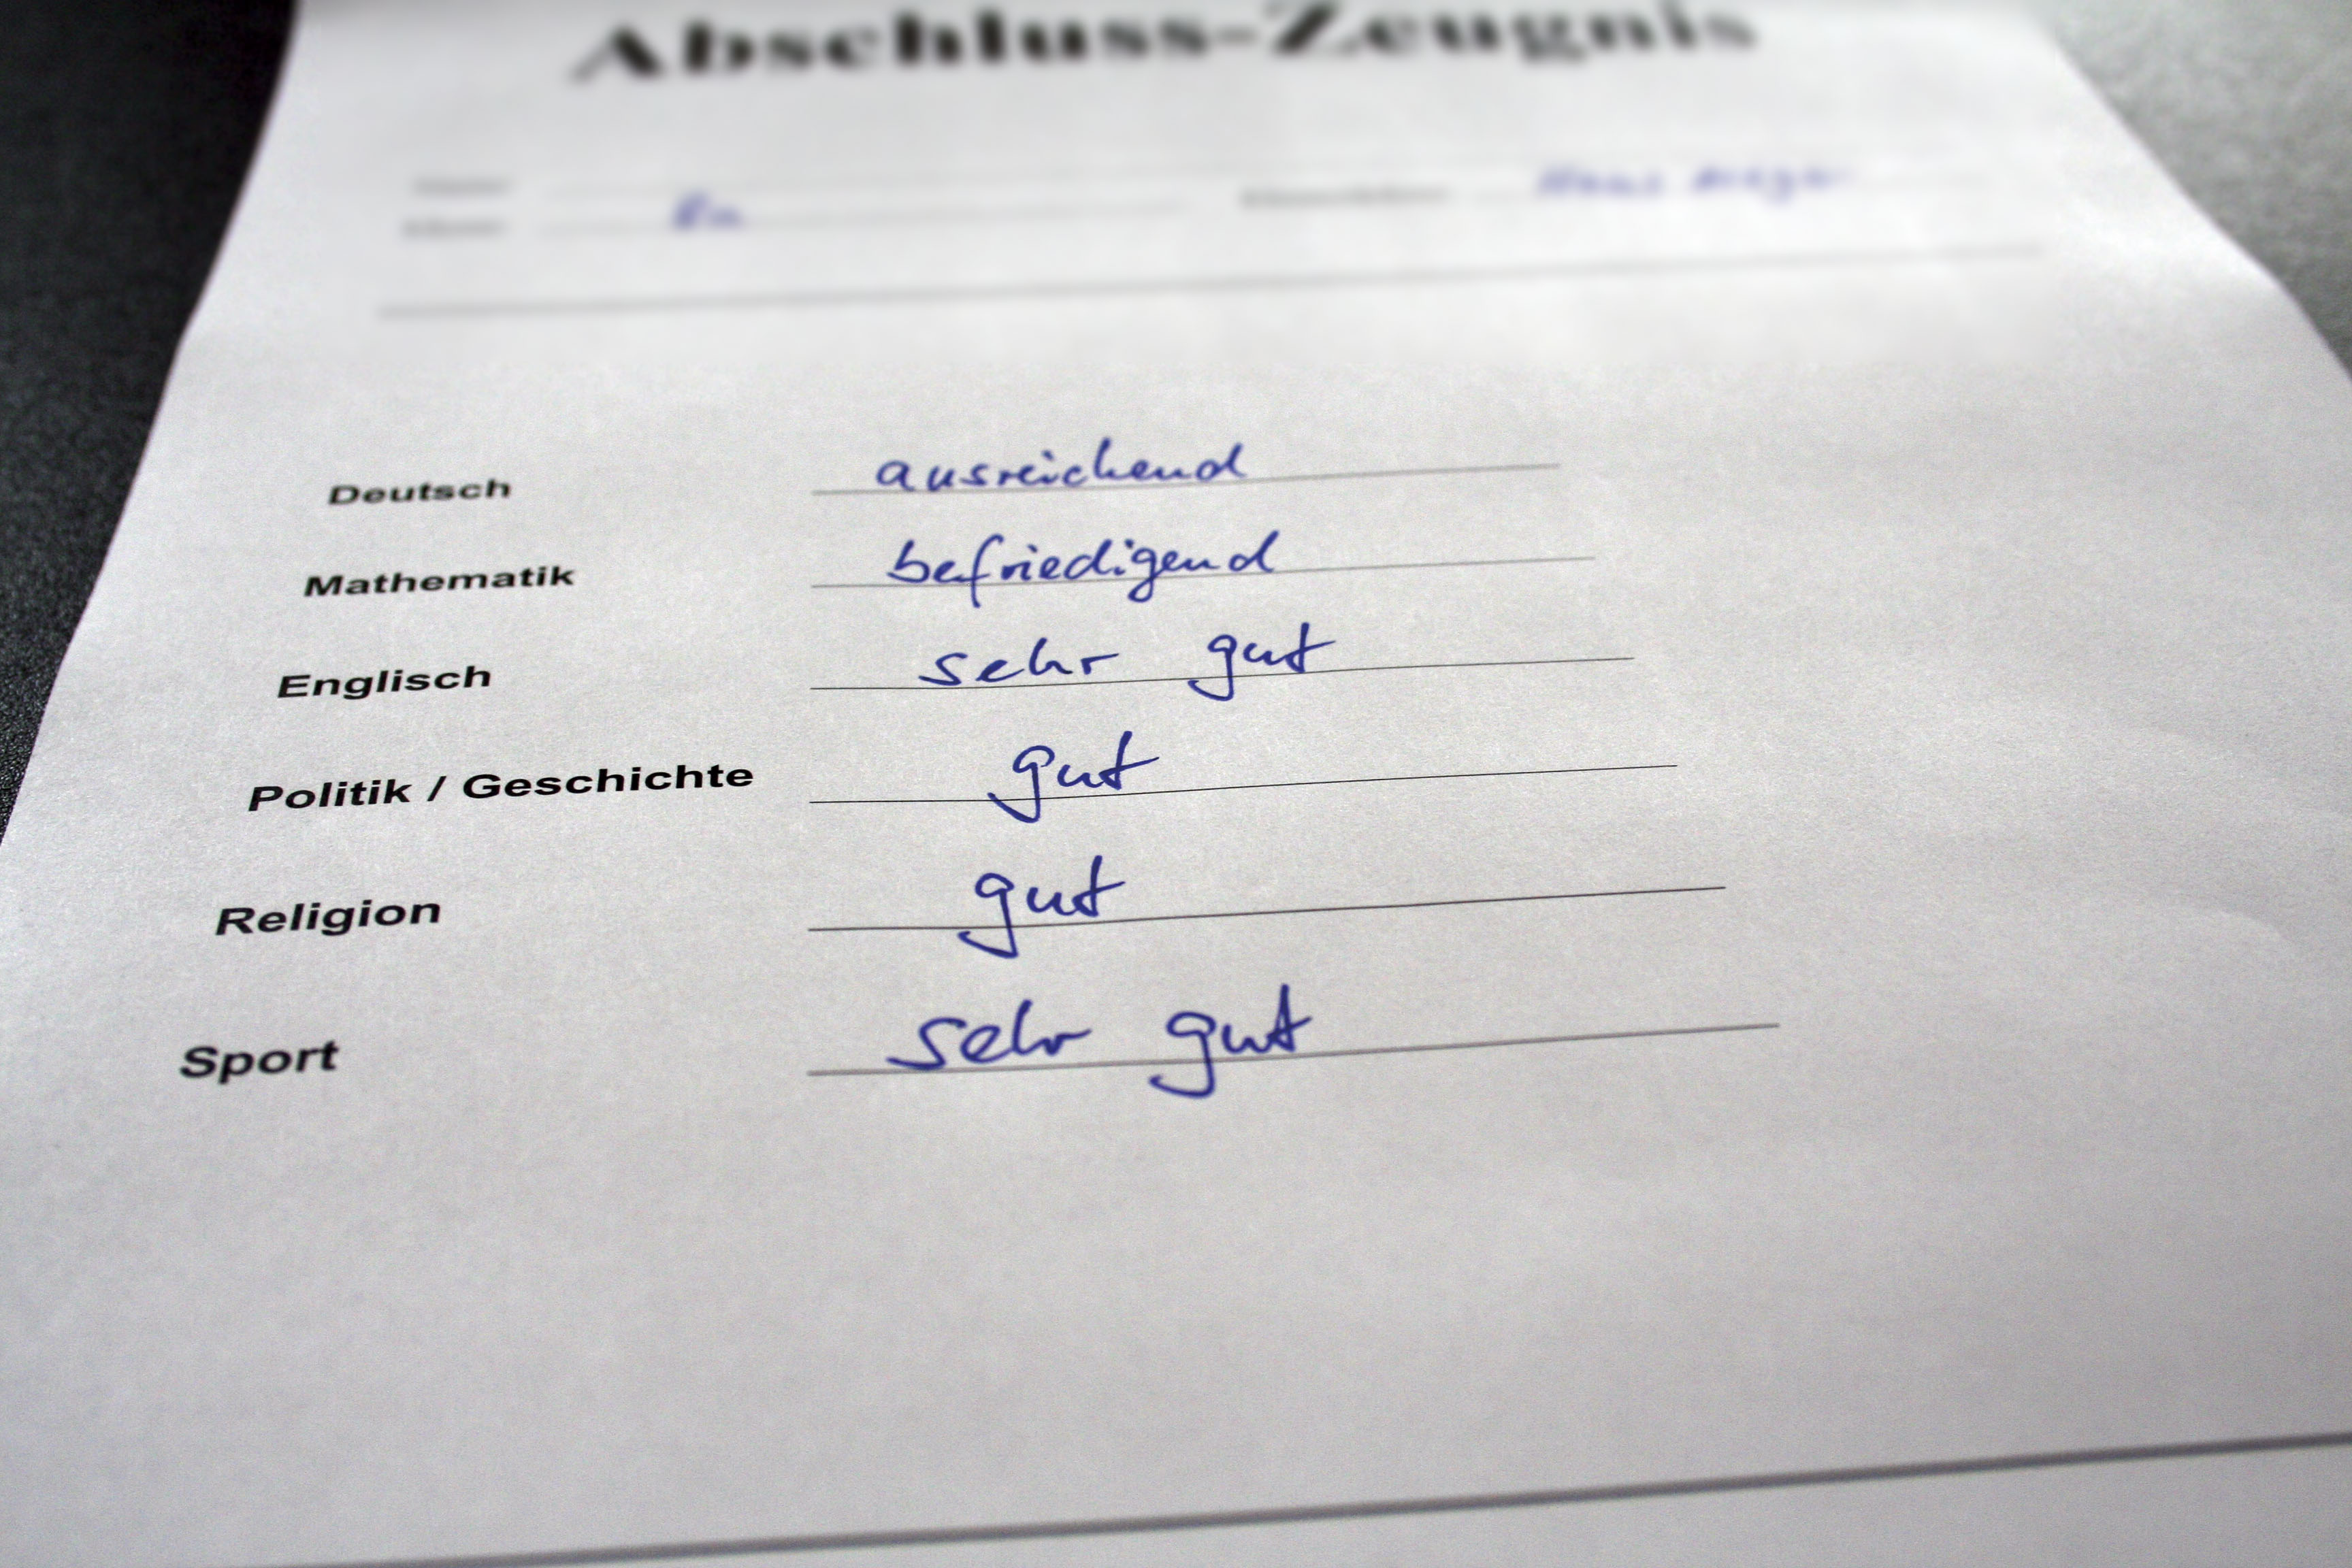 Abschluss-Zeugnis
Deutsch ausreichend
Mathematik befriedigend
Englisch sehr gut
Politik / Geschichte gut
Religion gut
Sport sehr gut